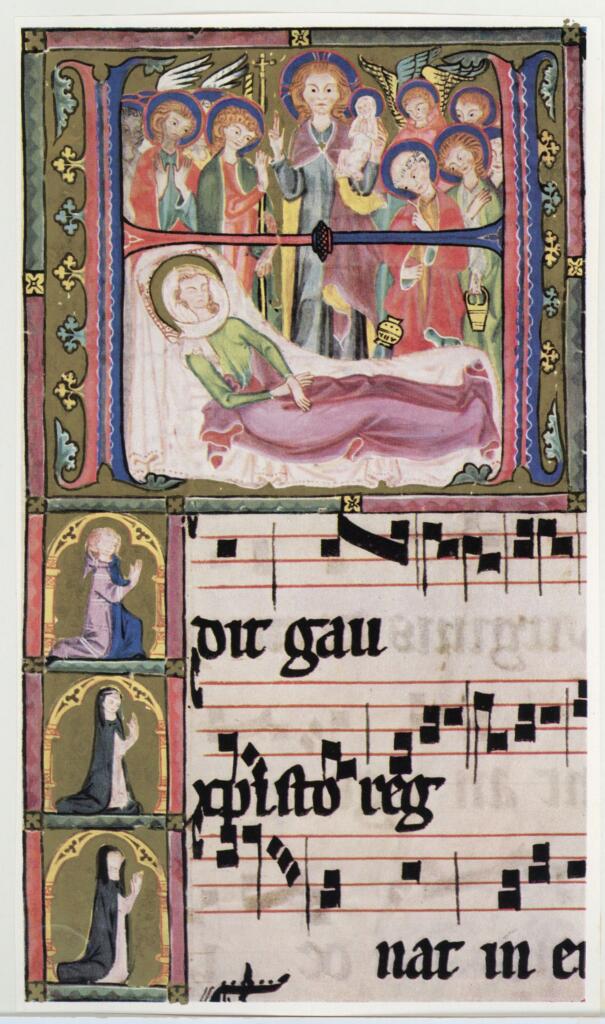 dit gau
xpisto reg
nat in e